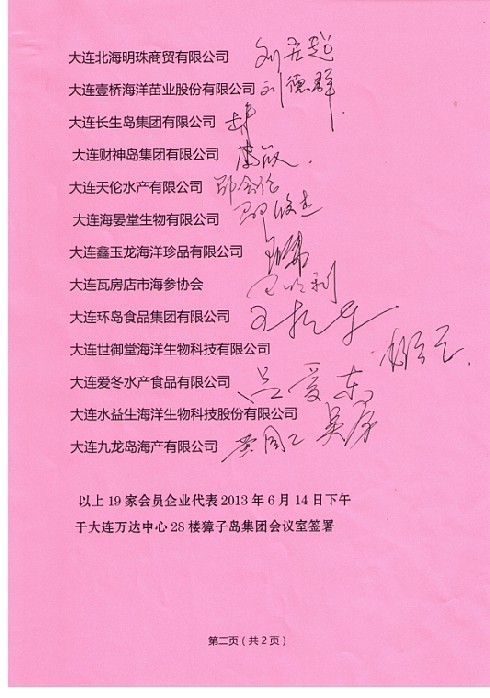 大连北海明珠商贸有限公司
大连壹桥海洋苗业股份有限公司 刘德群
大连长生岛集团有限公司
大连财神岛集团有限公司
大连天伦水产有限公司
大连海晏堂生物有限公司
大连鑫玉龙海洋珍品有限公司
大连瓦房店市海参协会
大连环岛食品集团有限公司
大连世御堂海洋生物科技有限公司
大连爱冬水产食品有限公司 吕爱东
大连水益生海洋生物科技股份有限公司
大连九龙岛海产有限公司
以上19家会员企业代表2013年6月14日下午
于大连万达中心28楼獐子岛集团会议室签署
第二页（共2页）